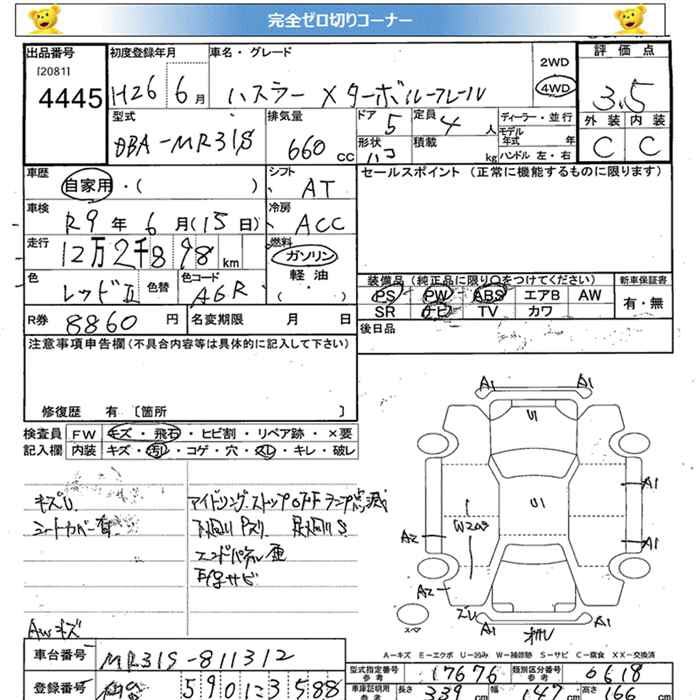 完全ゼロ切りコーナー
出品番号 初度登録年月 車名・グレード 評価点
[2081] 4445
H26 6月 ハスラー X ターボ 2WD 4WD 3.5
型式 排気量 ドア 定員 ディーラー・並行 外装 内装
DBA-MR31S 660cc 5 4人 モデル年式 年 C C
形状 積載 kg ハンドル 左・右
車歴 自家用・( ) シフト AT セールスポイント (正常に機能するものに限ります)
車検 R9年6月(15日) 冷房 ACC
走行 12万2千898km 燃料 ガソリン
軽油
( )
色 レッドII 色替 色コード A6R
装備品 (純正品に限り○をつけてください) 新車保証書
PS PW ABS エアB AW 有・無
SR ナビ TV カワ
R券 8860円 名変期限 月 日 後日品
注意事項申告欄(不具合内容等は具体的に記入して下さい)
修復歴 有 〔箇所 〕
検査員 FW キズ・飛石・ヒビ割・リペア跡・×要
記入欄 内装 キズ・汚レ・コゲ・穴・スレ・キレ・破レ
キズU
シートカバー有
アイドリングストップOFFランプ点滅
下廻りPスリ 足廻りS
エンドパネル歪
下廻サビ
AWキズ
A1 A1
U1
U1
A1
W2
A2 A1
A2
A1 A1
スペア
A-キズ E-エクボ U-凹み W-補修跡 S-サビ C-腐食 XX-交換済
車台番号 MR31S-811312
型式指定番号 参考 17676 類別区分番号 参考 0618
登録番号 590 588
車庫証明用 参考 長さ 339 幅 147 高さ 166